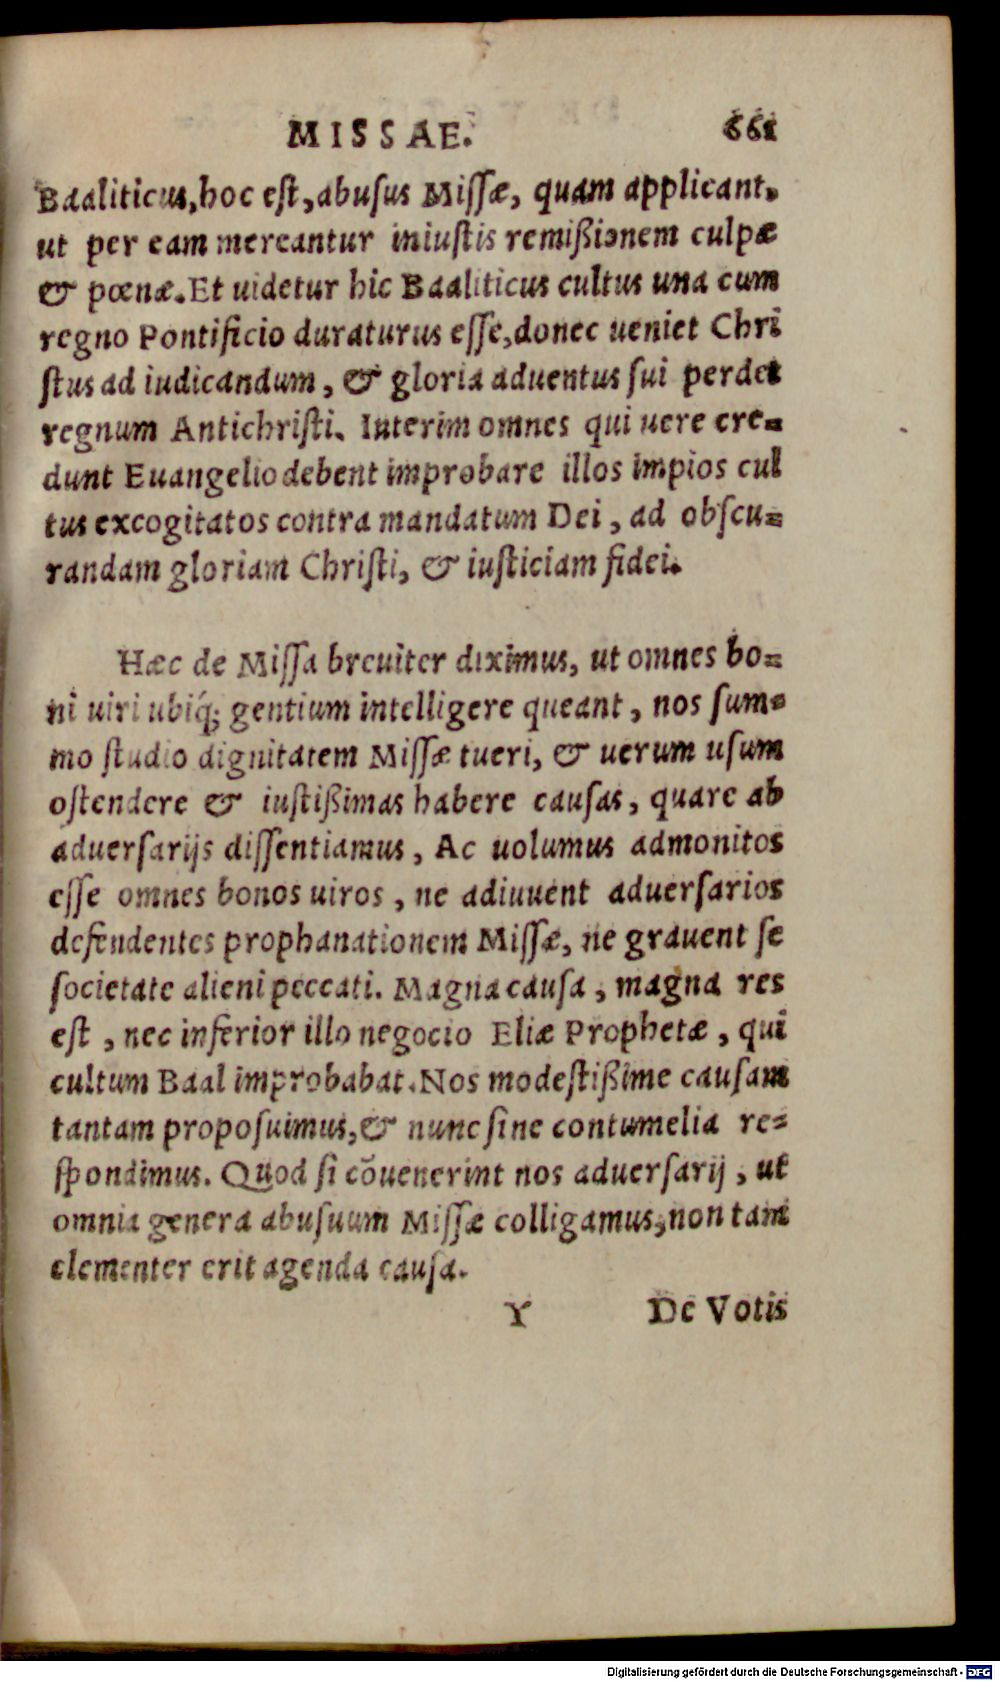 MISSAE. 661
Baaliticus, hoc est, abusus Missæ, quam applicant,
ut per eam mereantur iniustis remißionem culpæ
& pœnæ. Et uidetur hic Baaliticus cultus una cum
regno Pontificio duraturus esse, donec ueniet Chri
stus ad iudicandum, & gloria aduentus sui perdet
regnum Antichristi. Interim omnes qui uere cre=
dunt Euangelio debent improbare illos impios cul
tus excogitatos contra mandatum Dei, ad obscu=
randam gloriam Christi, & iusticiam fidei.
Hæc de Missa breuiter diximus, ut omnes bo=
ni uiri ubiq́; gentium intelligere queant, nos sum=
mo studio dignitatem Missæ tueri, & uerum usum
ostendere & iustißimas habere causas, quare ab
aduersarijs dissentiamus, Ac uolumus admonitos
esse omnes bonos uiros, ne adiuuent aduersarios
defendentes prophanationem Missæ, ne grauent se
societate alieni peccati. Magna causa, magna res
est, nec inferior illo negocio Eliæ Prophetæ, qui
cultum Baal improbabat. Nos modestißime causam
tantam proposuimus, & nunc sine contumelia re=
spondimus. Quod si cõuenerint nos aduersarij, ut
omnia genera abusuum Missæ colligamus, non tam
clementer erit agenda causa.
Y De Votis
Digitalisierung gefördert durch die Deutsche Forschungsgemeinschaft - DFG